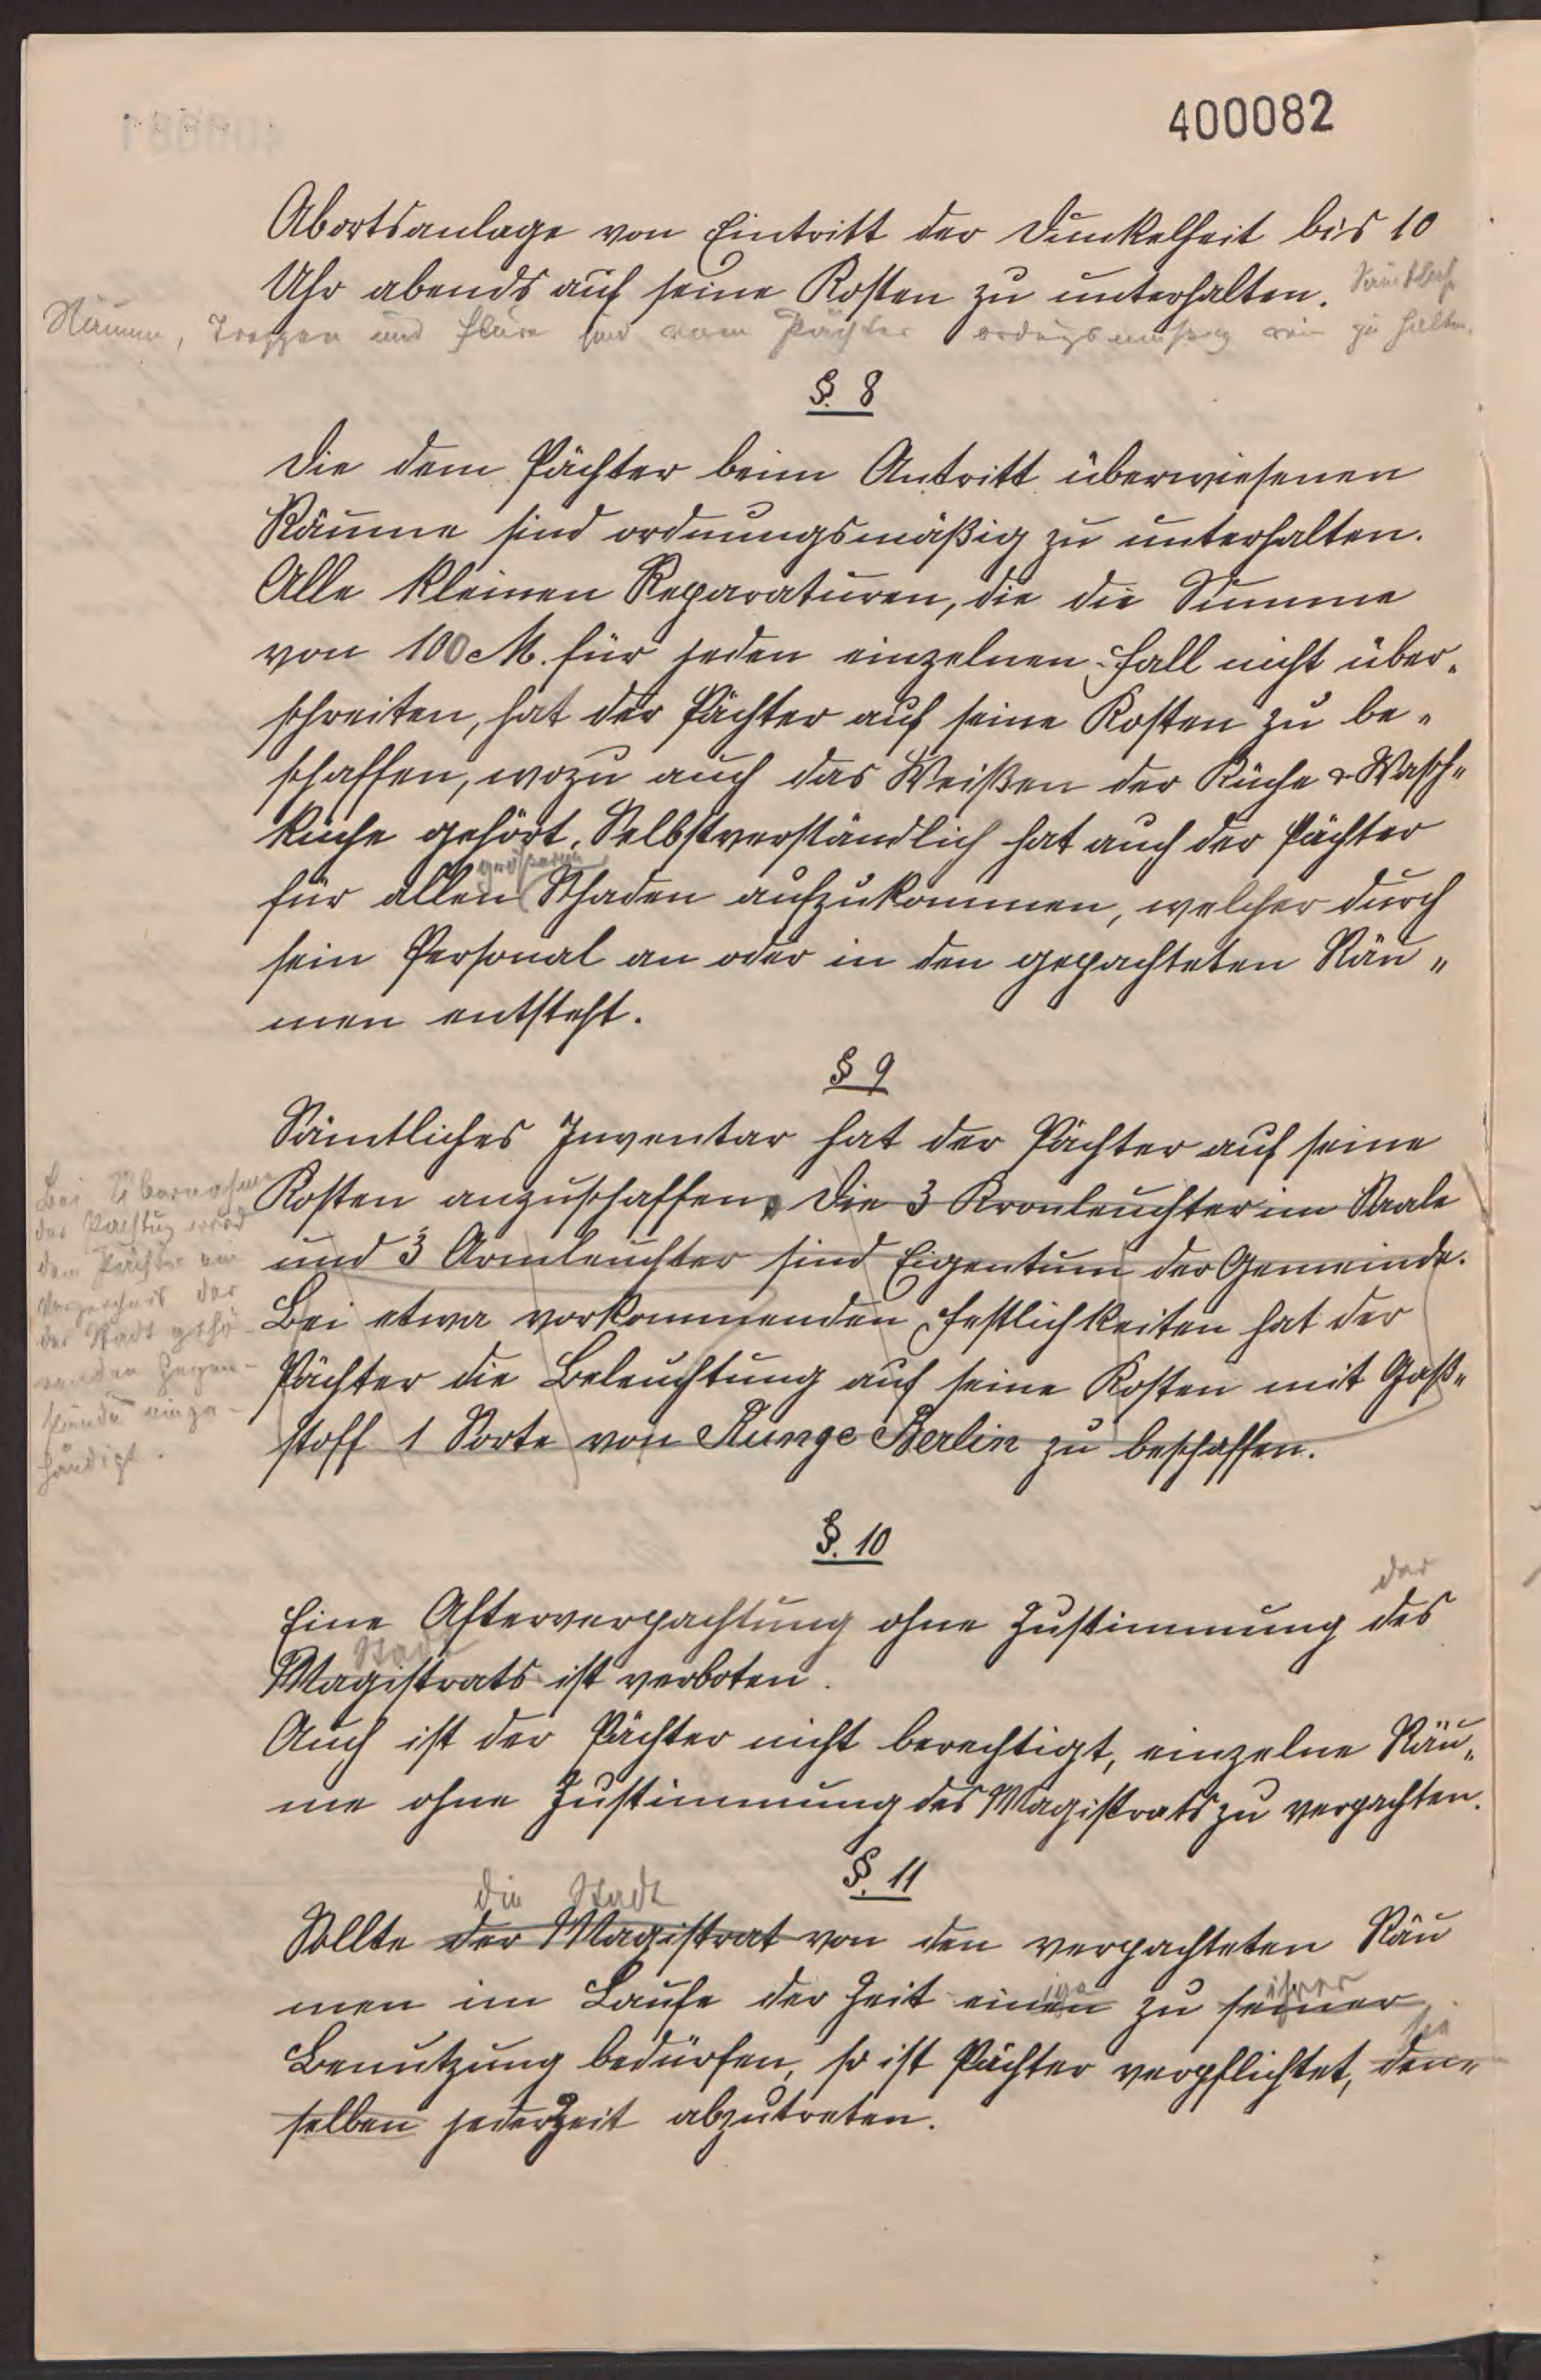 400082
Abortsanlage von Eintritt der Dunkelheit bis 10
Uhr abends auf seine Kosten zu unterhalten. Sämtliche
Räume, Treppen und Flure sind vom Pächter ordngsmäßig rein zu halten.
§. 8
Die dem Pächter beim Antritt überwiesenen
Räume sind ordnungsmäßig zu unterhalten.
Alle kleinen Reparaturen, die die Summe
von 100 M. für jeden einzelnen Fall nicht über„
schreiten, hat der Pächter auf seine Kosten zu be„
schaffen, wozu auch das Weißen der Küche & Wasch„
küche gehört. Selbstverständlich hat auch der Pächter
größeren
für allen Schaden aufzukommen, welcher durch
sein Personal an oder in den gepachteten Räu„
men entsteht.
§ 9
Sämtliches Inventar hat der Pächter auf seine
Kosten anzuschaffen. Die 3 Kronleuchter im Saale
und 3 Armleuchter sind Eigentum der Gemeinde.
Bei etwa vorkommenden Festlichkeiten hat der
Pächter die Beleuchtung auf seine Kosten mit Gaß„
stoff 1 Sorte von Runge Berlin zu beschaffen.
Bei Übernahme
der Pachtung wird
dem Pächter ein
Verzeichnis der
der Stadt gehö-
renden Gegen-
stände einge-
händigt.
§. 10
der
Eine Afterverpachtung ohne Zustimmung des
Stadt
Magistrats ist verboten.
Auch ist der Pächter nicht berechtigt, einzelne Räu„
me ohne Zustimmung des Magistrats zu verpachten.
§. 11
die Stadt
Sollte der Magistrat von den verpachteten Räu
ige ihrer
men im Laufe der Zeit einen zu seiner
sie
Benutzung bedürfen, so ist Pächter verpflichtet, den„
selben jederzeit abzutreten.